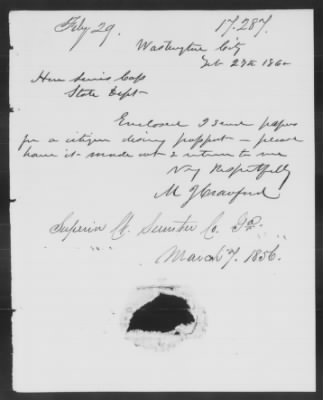 Feby 29.
17.287.
Washington City
Feb 27th 1860
Hon Lewis Cass
State Dept—
Enclosed I send papers
for a citizen desiring passport — please
have it made out & return to me
Very Respectfully
M J Crawford
Superior Ct. Sumter Co. Ga.
March 7. 1856.